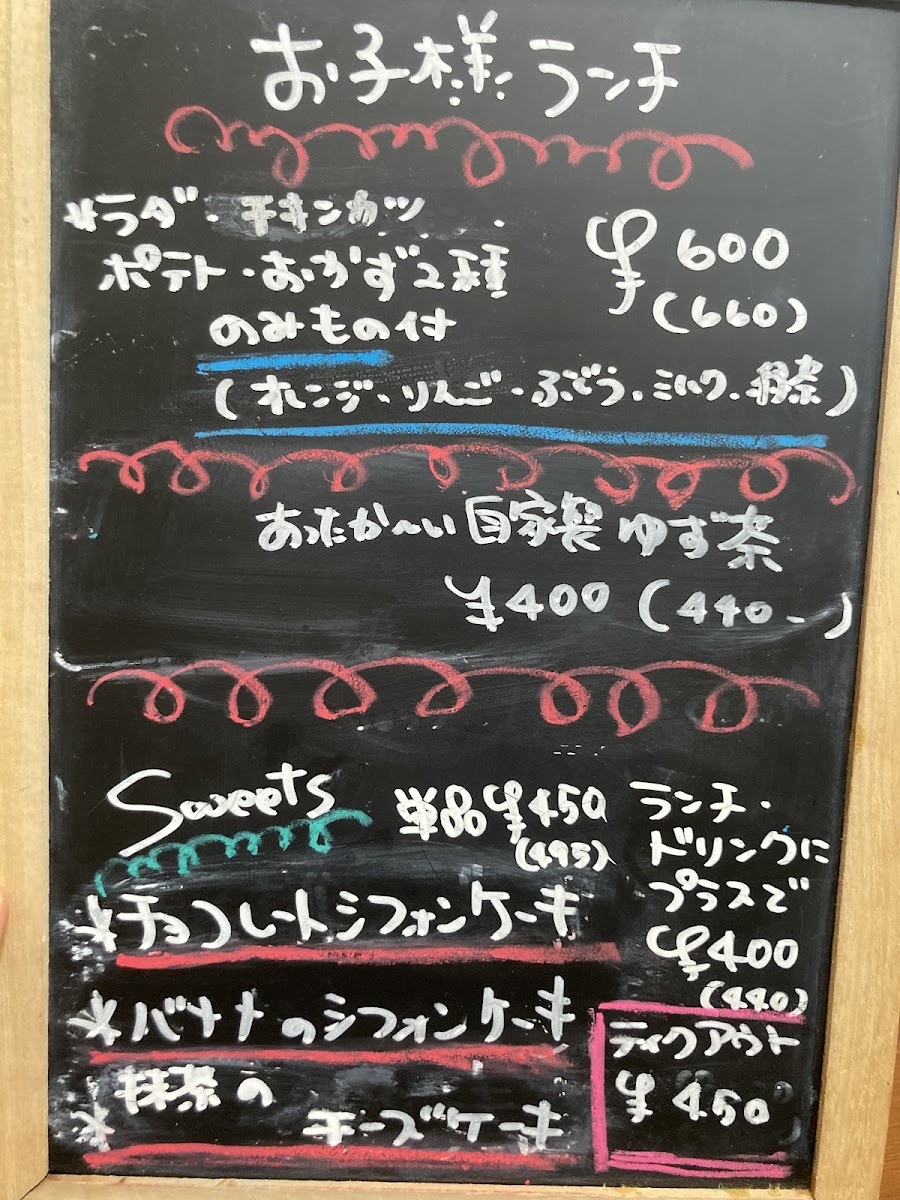 お子様ランチ
サラダ・チキンカツ
¥600
ポテト・おかず2種
(660)
のみもの付
(オレンジ・りんご・ぶどう・ミルク・緑茶)
あったか〜い自家製ゆず茶
¥400 (440-)
Sweets
単品¥450
(495)
ランチ・
ドリンクに
プラスで
¥400
(440)
*チョコレートシフォンケーキ
*バナナのシフォンケーキ
*抹茶の
チーズケーキ
テイクアウト
¥450